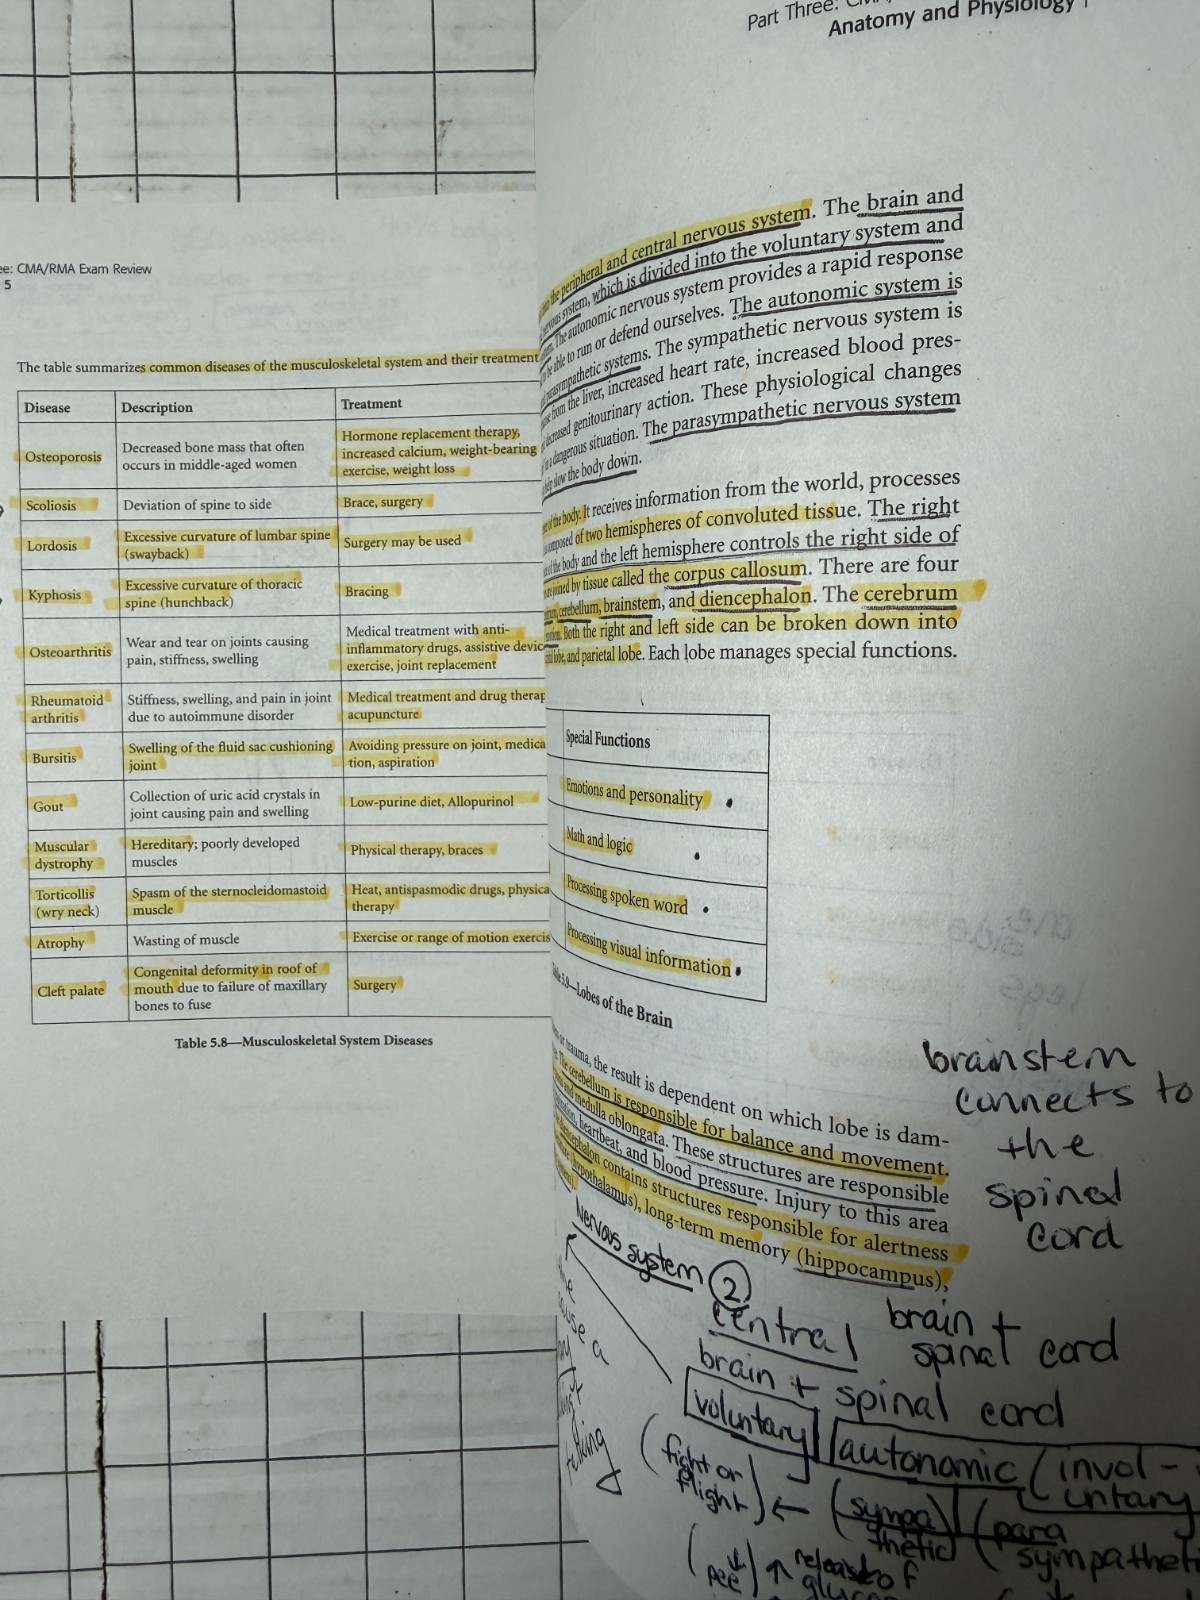 ee: CMA/RMA Exam Review
5
The table summarizes common diseases of the musculoskeletal system and their treatment
Disease Description Treatment
Osteoporosis Decreased bone mass that often occurs in middle-aged women Hormone replacement therapy, increased calcium, weight-bearing exercise, weight loss
Scoliosis Deviation of spine to side Brace, surgery
Lordosis Excessive curvature of lumbar spine (swayback) Surgery may be used
Kyphosis Excessive curvature of thoracic spine (hunchback) Bracing
Osteoarthritis Wear and tear on joints causing pain, stiffness, swelling Medical treatment with anti-inflammatory drugs, assistive devic exercise, joint replacement
Rheumatoid arthritis Stiffness, swelling, and pain in joint due to autoimmune disorder Medical treatment and drug therap acupuncture
Bursitis Swelling of the fluid sac cushioning joint Avoiding pressure on joint, medica tion, aspiration
Gout Collection of uric acid crystals in joint causing pain and swelling Low-purine diet, Allopurinol
Muscular dystrophy Hereditary; poorly developed muscles Physical therapy, braces
Torticollis (wry neck) Spasm of the sternocleidomastoid muscle Heat, antispasmodic drugs, physica therapy
Atrophy Wasting of muscle Exercise or range of motion exercis
Cleft palate Congenital deformity in roof of mouth due to failure of maxillary bones to fuse Surgery
Table 5.8—Musculoskeletal System Diseases
Part Three: CMA/
Anatomy and Physiology |
the peripheral and central nervous system. The brain and
system, which is divided into the voluntary system and
The autonomic nervous system provides a rapid response
be able to run or defend ourselves. The autonomic system is
parasympathetic systems. The sympathetic nervous system is
from the liver, increased heart rate, increased blood pres-
decreased genitourinary action. These physiological changes
in a dangerous situation. The parasympathetic nervous system
help slow the body down.
of the body. It receives information from the world, processes
composed of two hemispheres of convoluted tissue. The right
of the body and the left hemisphere controls the right side of
joined by tissue called the corpus callosum. There are four
cerebellum, brainstem, and diencephalon. The cerebrum
Both the right and left side can be broken down into
lobe, and parietal lobe. Each lobe manages special functions.
Special Functions
Emotions and personality
Math and logic
Processing spoken word
Processing visual information
5.9—Lobes of the Brain
or trauma, the result is dependent on which lobe is dam-
The cerebellum is responsible for balance and movement.
and medulla oblongata. These structures are responsible
heartbeat, and blood pressure. Injury to this area
diencephalon contains structures responsible for alertness
(hypothalamus), long-term memory (hippocampus),
brainstem
connects to
the
spinal
cord
Nervous system 2
central brain +
spinal cord
brain + spinal cord
voluntary autonomic (invol-
untary
(fight or
flight) ← (sympa
thetic (para
sympatheti
(pee) ↑ release of
cause a
talking